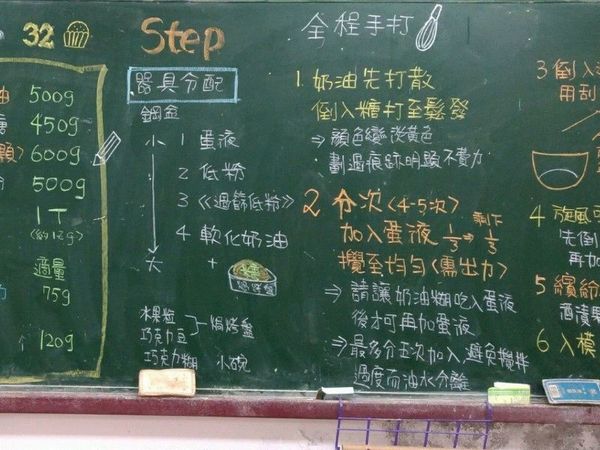 32
油 500g
糖 450g
顆) 600g
500g
1T
(約12g)
適量
75g
120g
Step
器具分配
鋼盆
小 1 蛋液
2 低粉
3 《過篩低粉》
4 軟化奶油
大 +
水果粒
巧克力豆
焗烤盤
巧克力糊 小碗
全程手打
1. 奶油先打散
倒入糖打至鬆發
⇒ 顏色變淡黃色
劃過痕跡明顯不費力
2 分次(4-5次)
加入蛋液 1/3 ⇒ 剩下 1/3
攪至均勻(需出力)
⇒ 請讓奶油糊吃入蛋液
後才可再加蛋液
⇒ 最多分五次加入避免攪拌
過度而油水分離
3 倒入
用刮
4 旋風
先倒
再加
5 繽紛
酒漬
6 入模